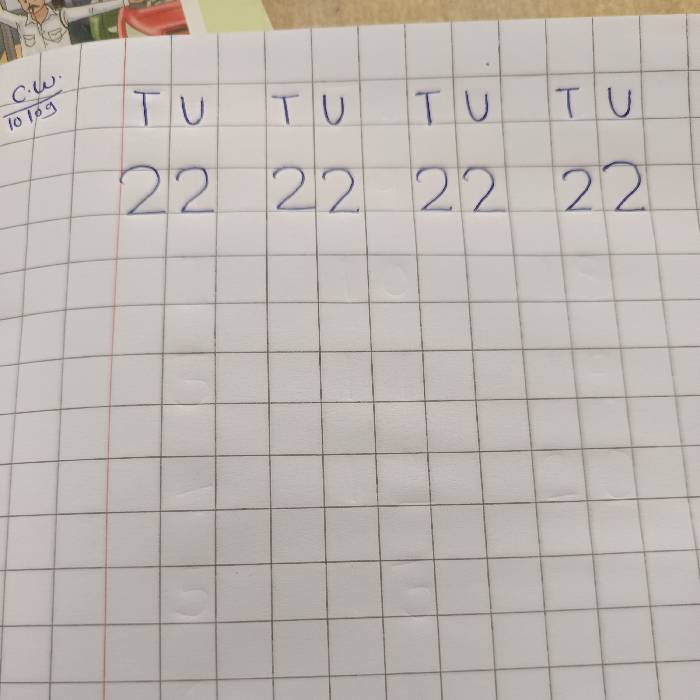 C.W.
10/09
T U T U T U T U
22 22 22 22